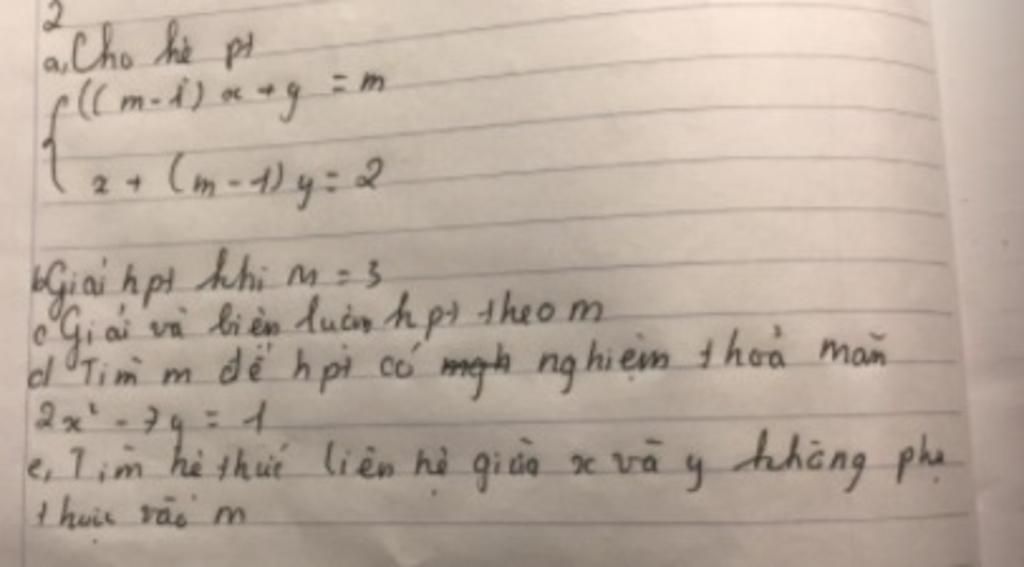 2
a, Cho hệ pt
{ ((m-1) x + y = m
x + (m-1) y = 2
b Giải hpt khi m = 3
c Giải và biện luận hpt theo m
d Tìm m để hpt có nghiệm thoả mãn
2x² - 7y = 1
e, Tìm hệ thức liên hệ giữa x và y không phụ
thuộc vào m